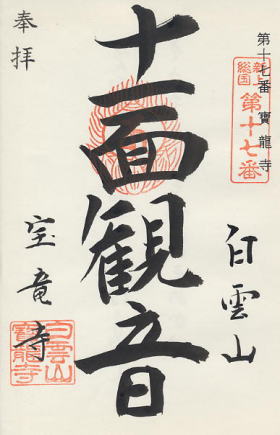 奉拝
第十七番 寶龍寺
新上
総国
第十七番
十一面観音
白雲山
宝竜寺
白雲山
寶龍寺